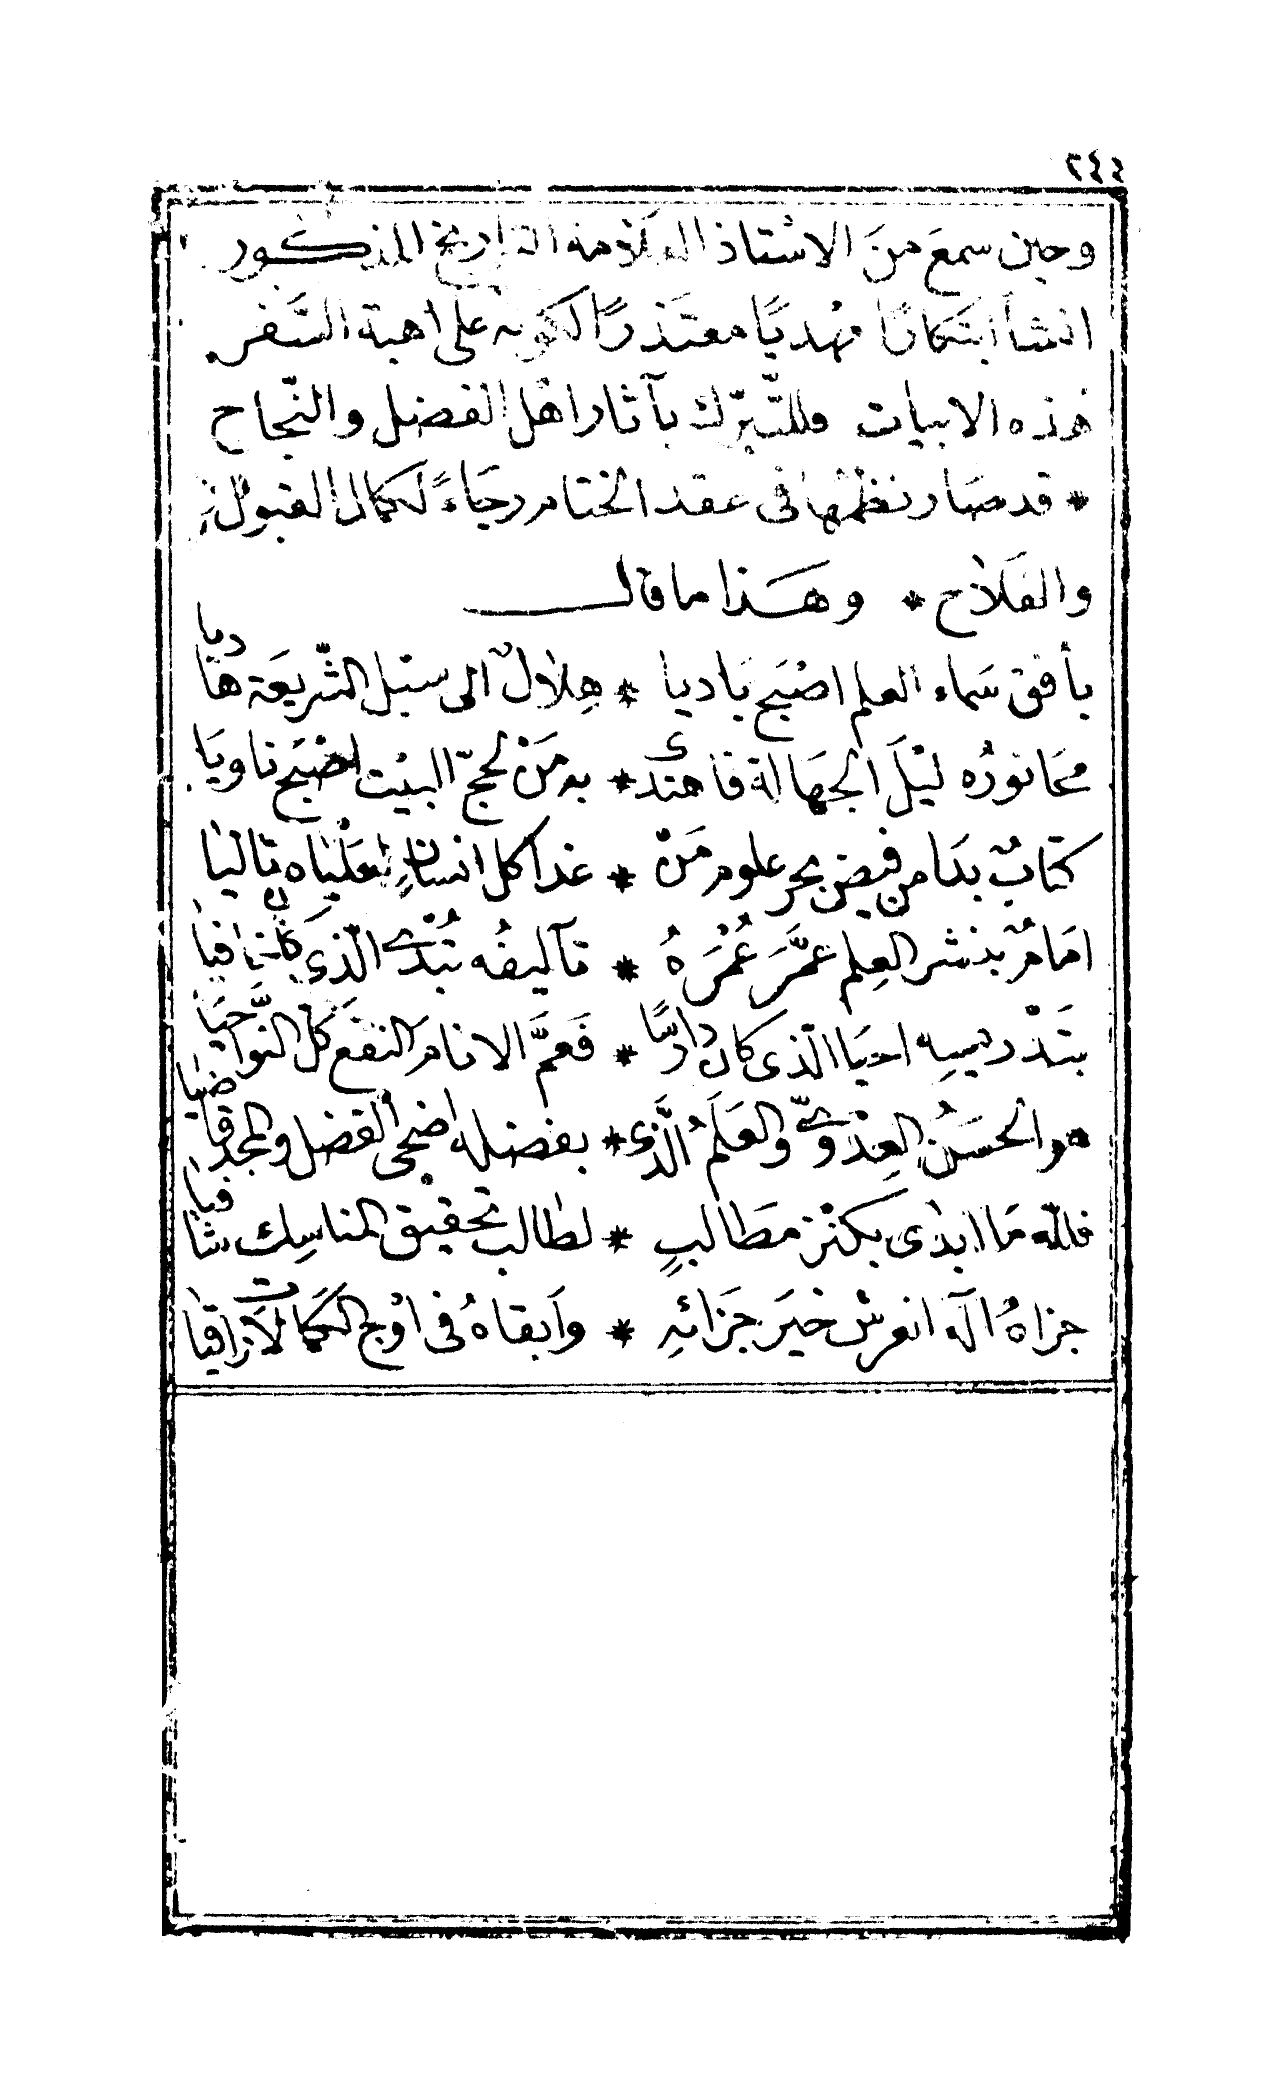 ٢٤٤
وحين سمع منَ الاسْتاذ العلاّمة التاريخ المذكور
انشأ ابتكارًا مُهْديًا معتَذرًا لكونه على اهبة السَّفر
هذه الابيات وللتَّبرّك بآثار اهْل الفضل والنّجاح
* قد صَار نظمُها فى عقد الختام رجَاءً لكمال القبول
والفَلاح * وهَذا ما قال
بأفق سَماء العلم اصْبَح بَاديا * هِلالٌ الى سبُل الشّريعَة هاديا
محَا نورُه ليْلَ الجهَالة فاهتدى * به مَنْ لحجّ البيْت اصْبَح ناويَا
كتابٌ بدَا من فيض بحر علوم مَنْ * غدا كل انسانٍ لعَلْياه تاليَا
امَامٌ بنشر العِلم عَمَّرَ عُمْرَهُ * تآليفُه تُبْدى الّذى كان خافيا
بتَدْريسِه احيَا الّذى كان دارسًا * فَعمَّ الانامَ النفعَ كلَّ النواحيَا
هو الحسَنُ العِدْوىّ والعَلَمُ الَّذى * بفضله اضحى الفضل والمجد قاضيا
فللّه مَا ابدَى بكنْز مطَالبٍ * لطالب تحقيق المناسِك شافيا
جزاهُ الَه العرْش خيَر جَزائهِ * وابقاهُ فى اوْج الكمَالات راقيَا